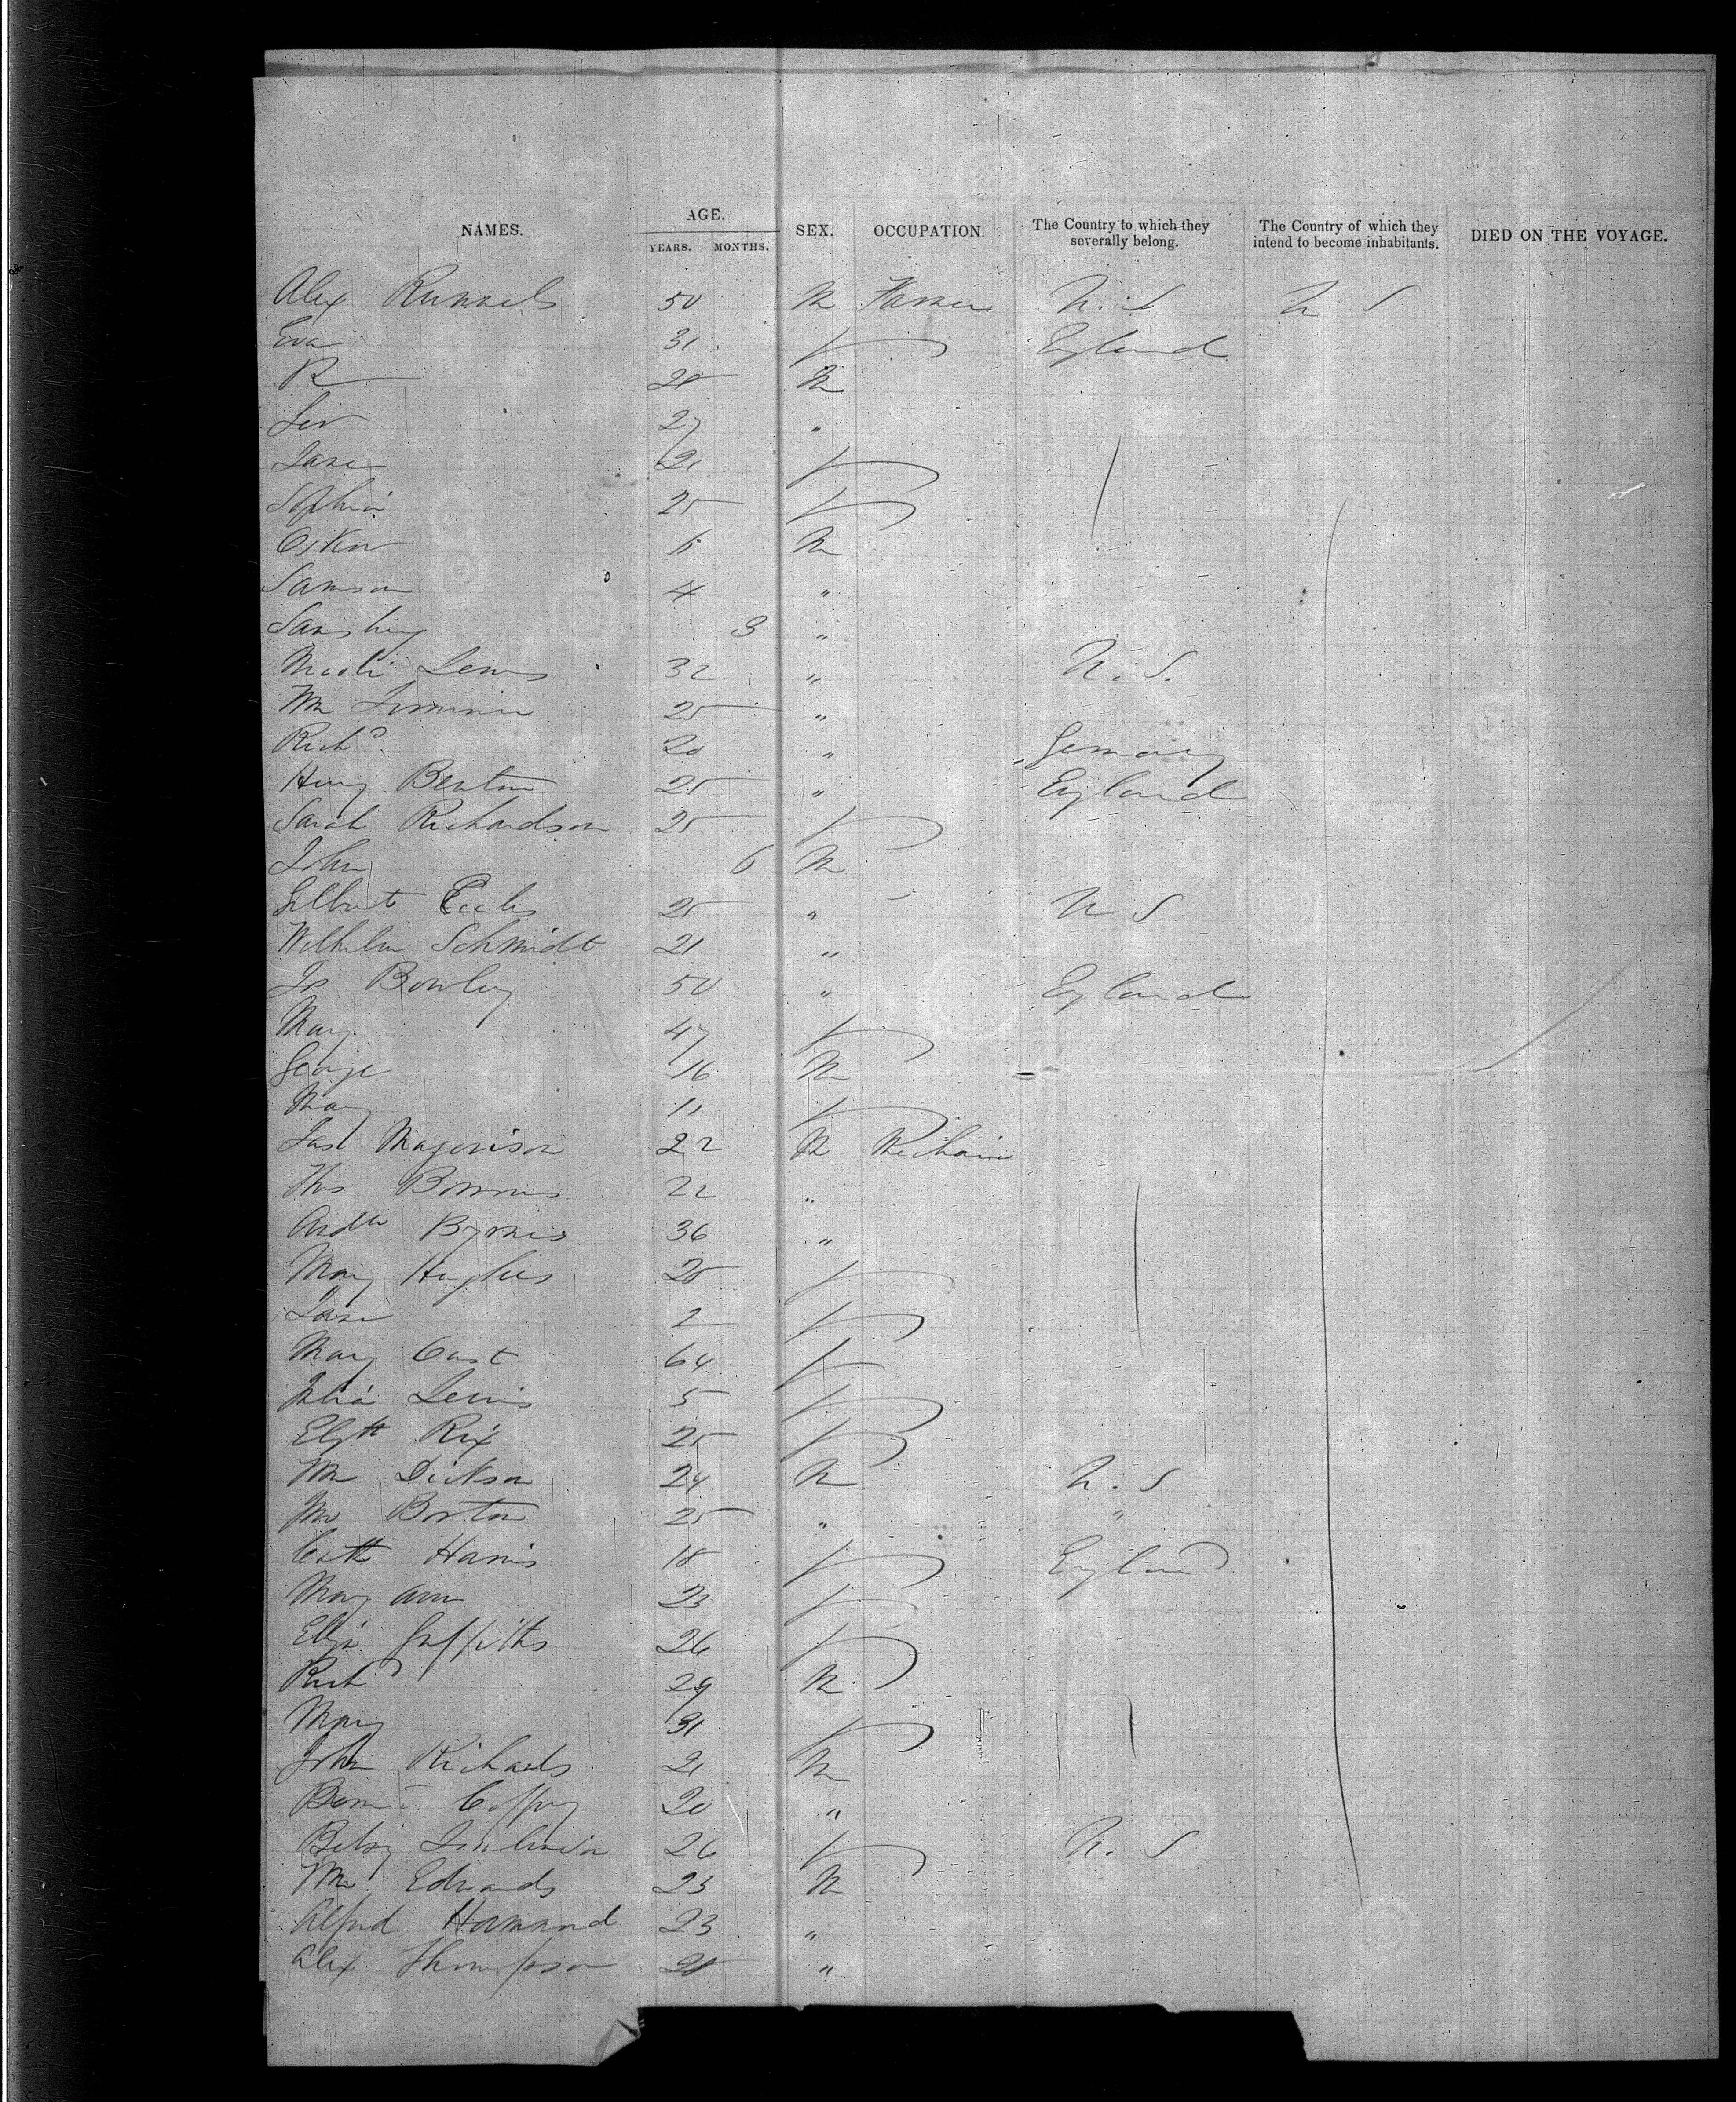 NAMES. AGE. SEX. OCCUPATION. The Country to which they severally belong. The Country of which they intend to become inhabitants. DIED ON THE VOYAGE.
YEARS. MONTHS.
Alex Runnels 50 M Farmer U.S U S
Eva 31 F England
R 28 M
27 "
Jane 21 F
Sophia 25 F
6 M
Samson 4 "
3 "
Lewis 32 " U.S.
Wm 25 "
Richd 20 " Germany
Henry Benton 25 " England
Sarah Richardson 25 F
John 6 M
Gilbert Eccles 25 " U S
Wilhelm Schmidt 21 "
Js Bowley 50 " England
Mary 47 F
George 16 M
Mary 11 F
22 M Mechanic
Thos 22 "
Byrnes 36 "
Mary Hughes 28 F
Jane 2 F
Mary Cast 64 F
Julia Lewis 5 F
Elizth Rix 25 F
Wm Dickson 24 M U.S
Barton 25 " "
Cath Harris 18 F England
Mary Ann 23 F
Eliza Griffiths 26 F
Richd 29 M
Mary 31 F
John Richards 21 M
20 "
Betsy 26 F U.S
Wm Edwards 23 M
Alfred Hammond 23 "
Alex Thompson 28 "